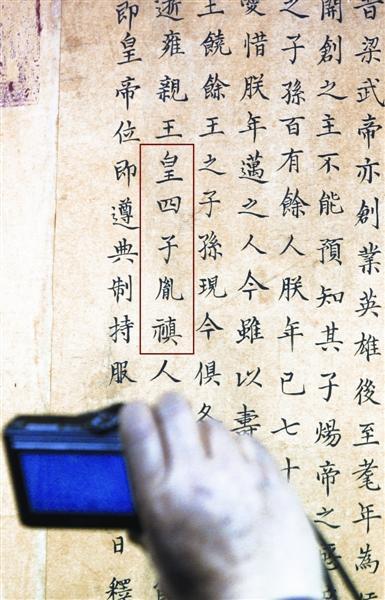 昔梁武帝亦創業英雄後至耄年為
開創之主不能預知其子煬帝之
之子孫百有餘人朕年已七十
愛惜朕年邁之人今雖以壽
王饒餘王之子孫現今俱久
逝雍親王皇四子胤禛人
即皇帝位即遵典制持服日釋